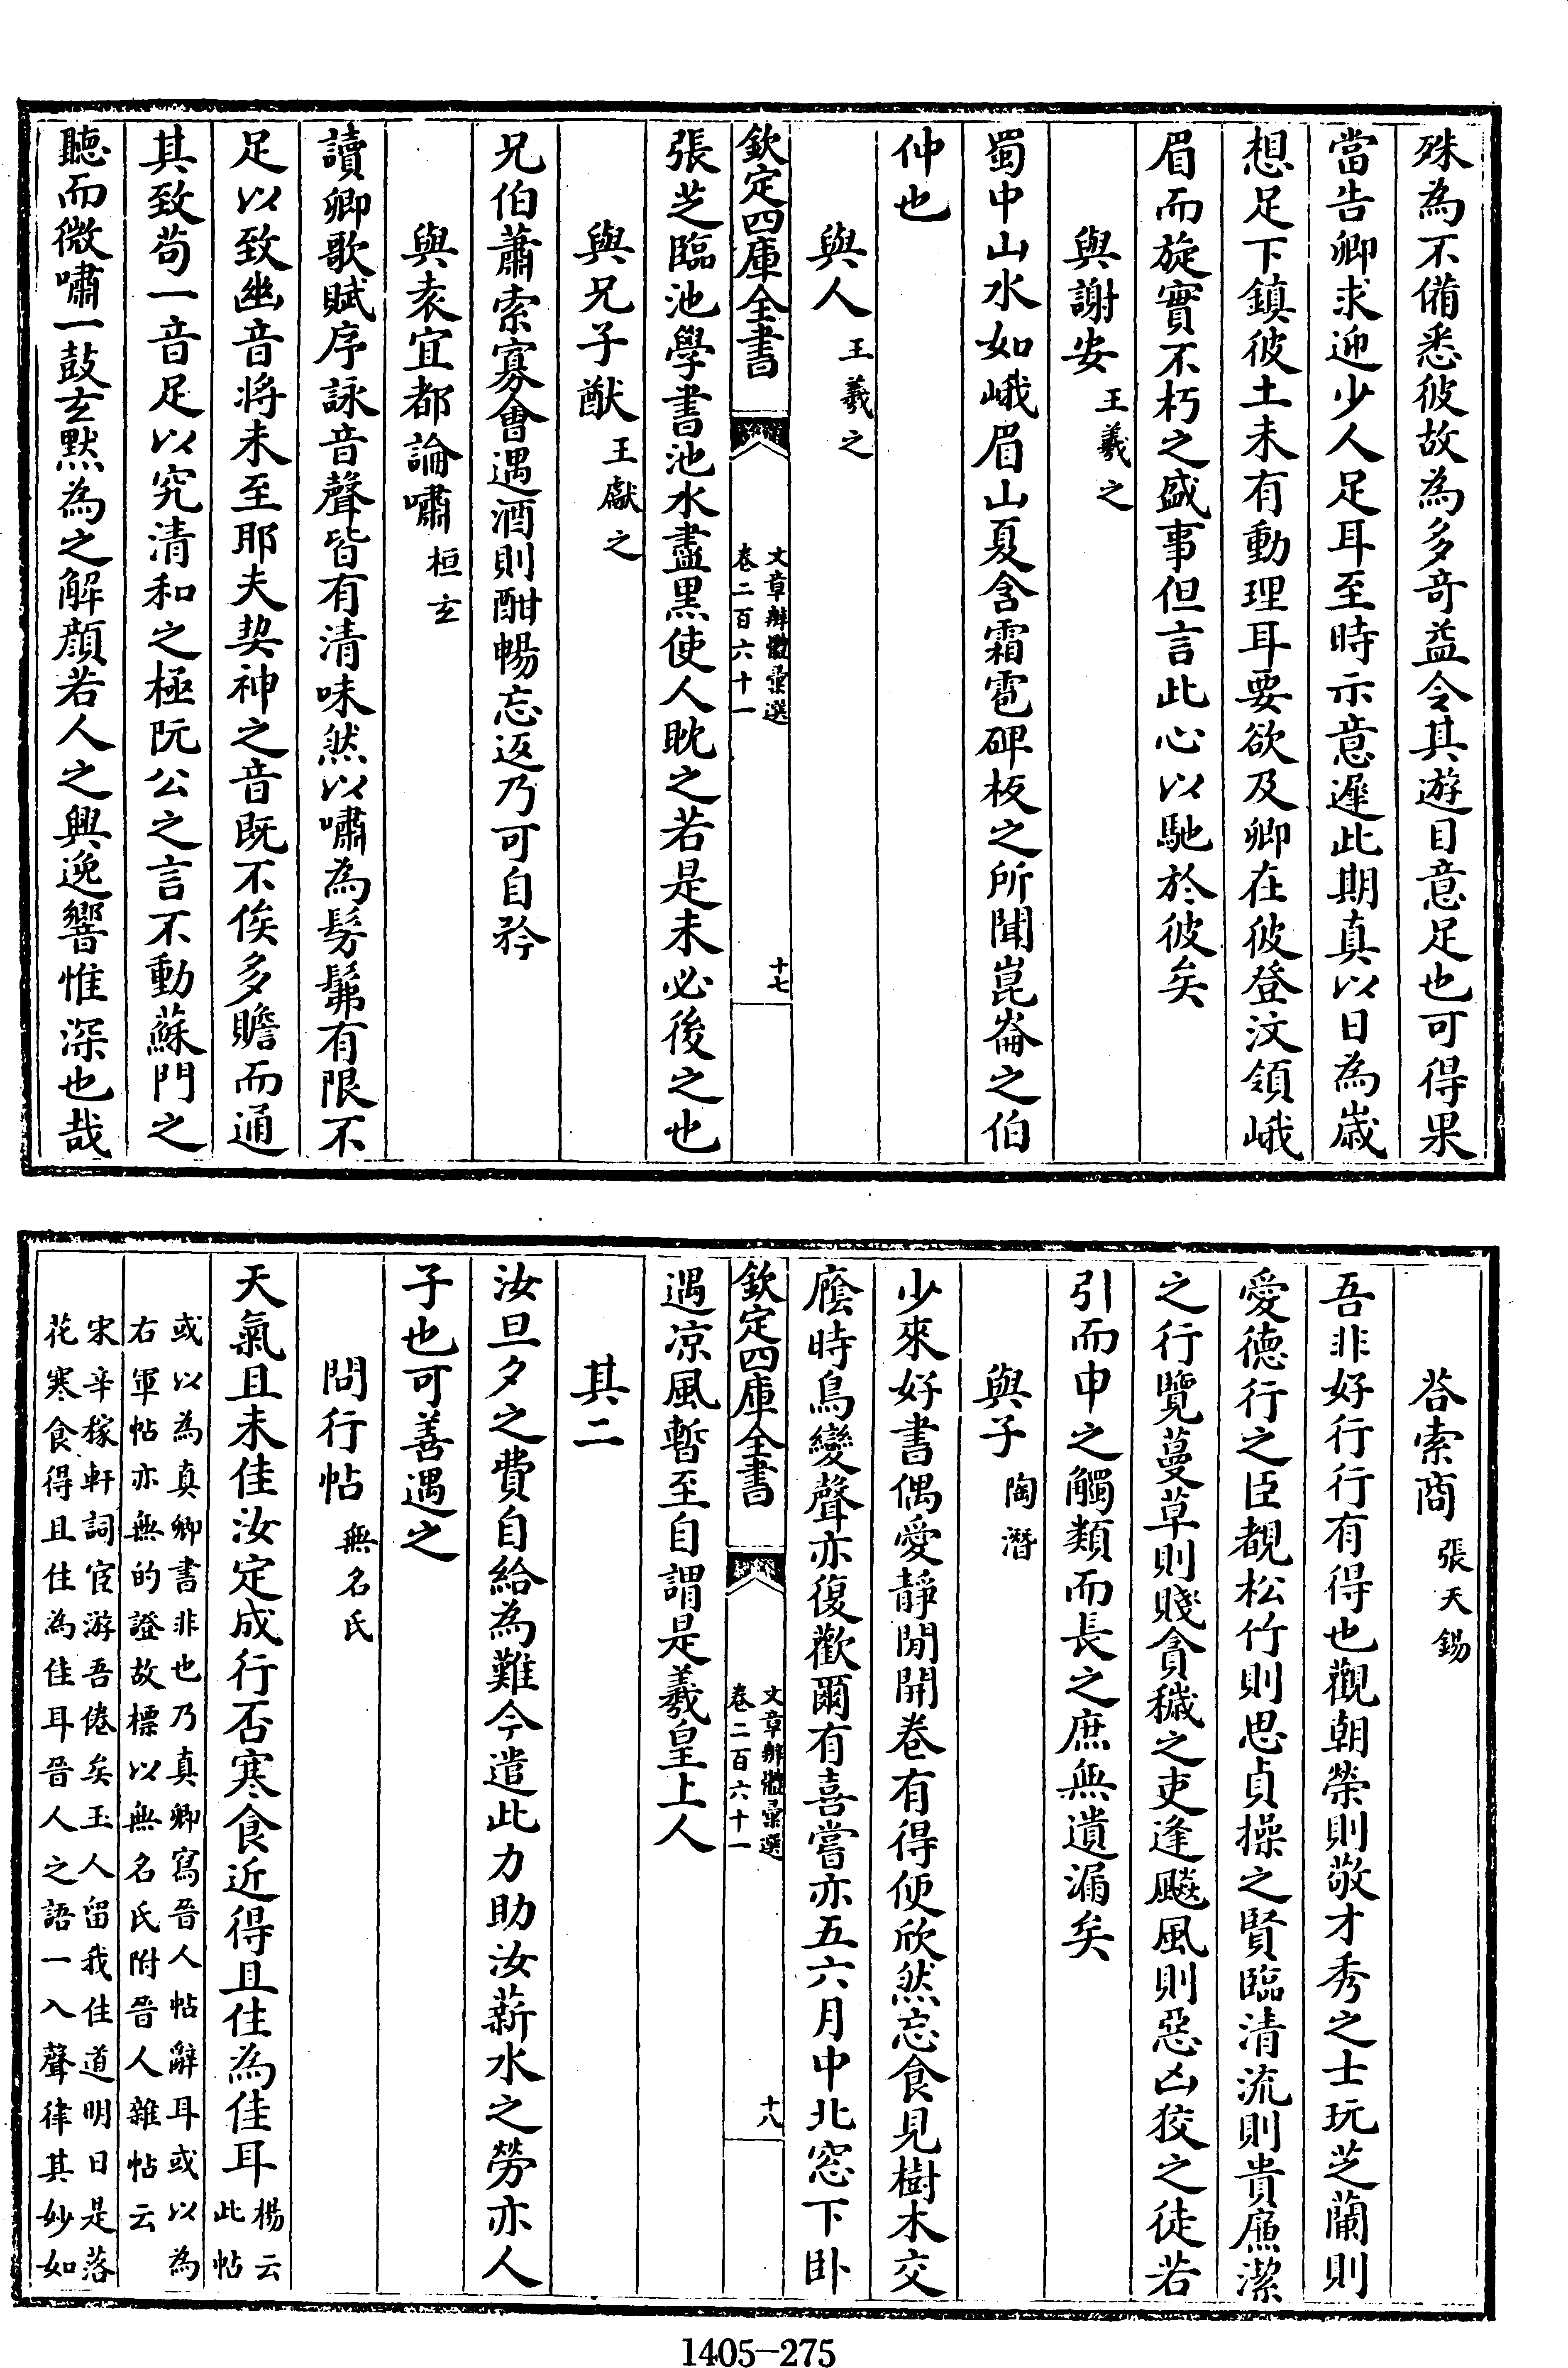 殊為不備悉彼故為多奇益令其遊目意足也可得果
當告卿求迎少人足耳至時示意遲此期真以日為歳
想足下鎮彼土未有動理耳要欲及卿在彼登汶領峨
眉而旋實不朽之盛事但言此心以馳於彼矣
與謝安 王羲之
蜀中山水如峨眉山夏含霜雹碑板之所聞崑崙之伯
仲也
與人 王羲之
欽定四庫全書 文章辨體彙選 卷二百六十一 十七
張芝臨池學書池水盡黒使人眈之若是未必後之也
與兄子猷 王獻之
兄伯蕭索寡會遇酒則酣暢忘返乃可自矜
與袁宜都論嘯 桓玄
讀卿歌賦序詠音聲皆有清味然以嘯為髣髴有限不
足以致幽音將未至耶夫契神之音既不俟多贍而通
其致苟一音足以究清和之極阮公之言不動蘇門之
聽而微嘯一鼓玄默為之解顔若人之興逸響惟深也哉
荅索商 張天錫
吾非好行行有得也觀朝榮則敬才秀之士玩芝蘭則
愛德行之臣覩松竹則思貞操之賢臨清流則貴㢘潔
之行覽蔓草則賤貪穢之吏逢飇風則惡凶狡之徒若
引而申之觸類而長之庶無遺漏矣
與子 陶潛
少來好書偶愛靜閒開卷有得便欣然忘食見樹木交
廕時鳥變聲亦復歡爾有喜嘗亦五六月中北窓下卧
欽定四庫全書 文章辨體彙選 卷二百六十一 十八
遇凉風暫至自謂是羲皇上人
其二
汝旦夕之費自給為難今遣此力助汝薪水之勞亦人
子也可善遇之
問行帖 無名氏
天氣且未佳汝定成行否寒食近得且住為佳耳 楊云
此帖
或以為真卿書非也乃真卿寫晉人帖辭耳或以為
右軍帖亦無的證故標以無名氏附晉人雜帖云
宋辛稼軒詞宦游吾倦矣玉人留我佳道明日是落
花寒食得且住為佳耳晉人之語一入聲律其妙如
1405-275